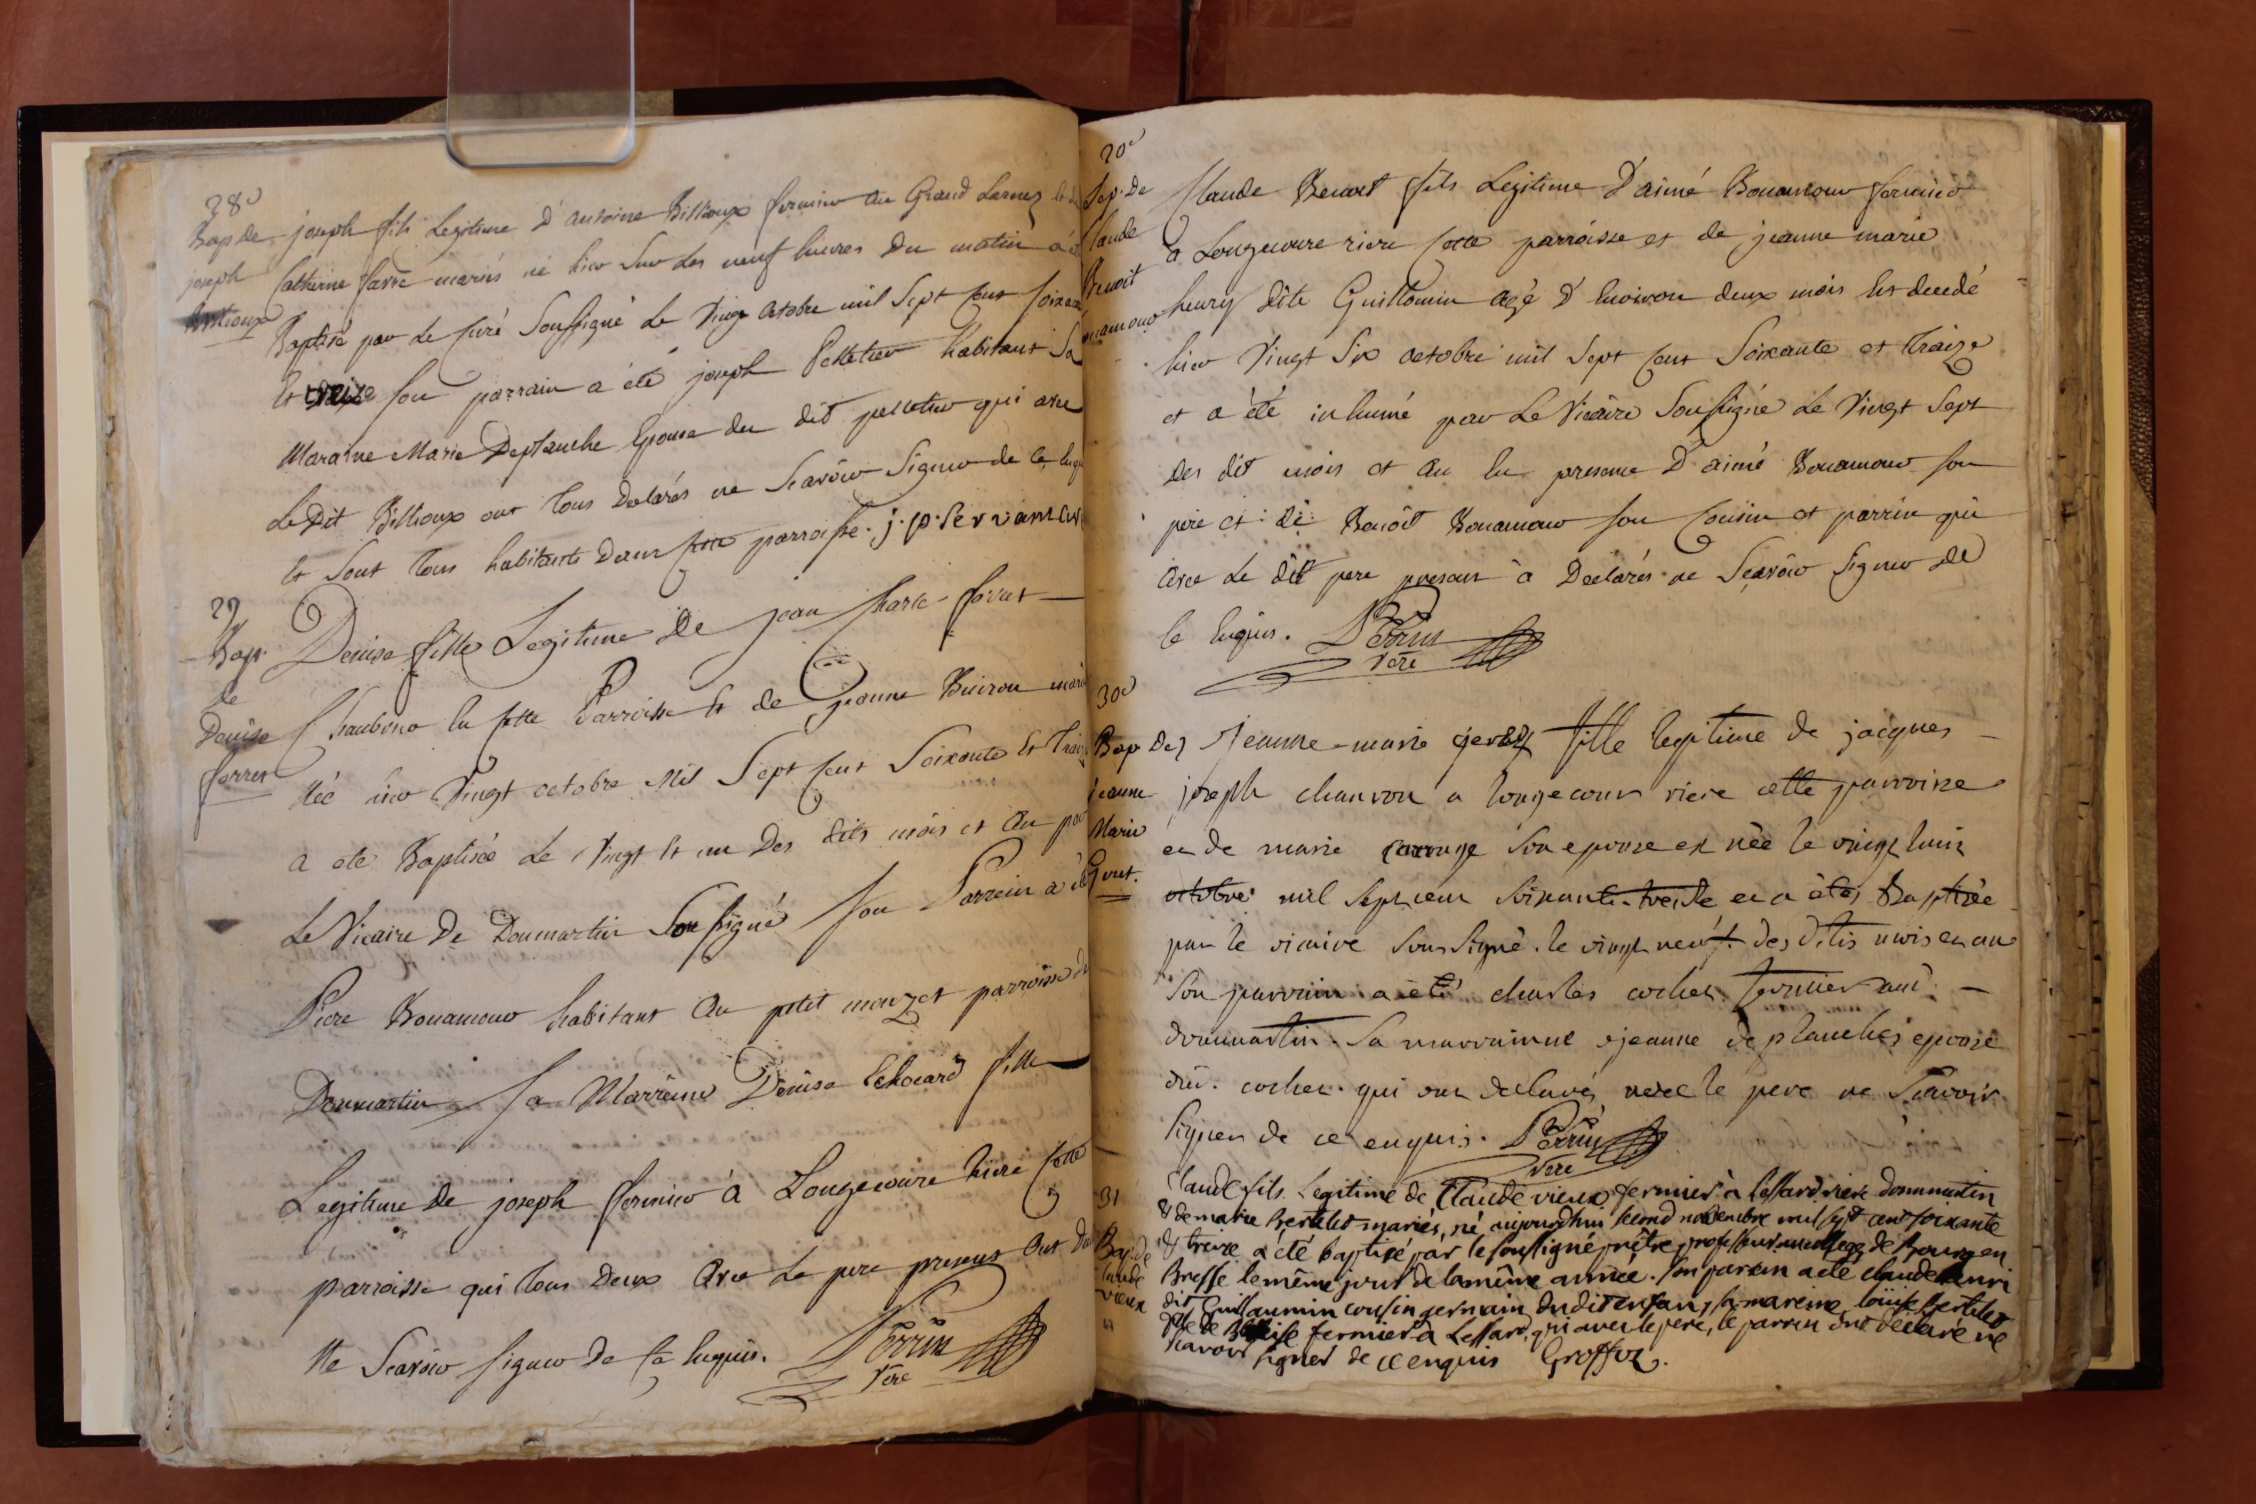 28e
Bap de
joseph
Billioux
joseph fils Legitime D'antoine Billioux fermier au Grand
Catherine favre mariés né hier sur Les neuf heures Du matin a
Baptisé par Le Curé Soussigné Le Vingt octobre mil Sept Cent Soixan
Et treize son parrain a été joseph Pelletier habitant Sa
Maraine Marie Deplanche Epouse du dit pelletier qui avec
Le Dit Billioux ont tous Declarés ne Scavoir Signer de Ce Enqu
Et Sont tous habitants Dans Cette parroisse. j. p. servant
29
Bap.
de
Denise
ferret
Denise fille Legitime De jean Charle ferret
en Cette Parroisse Et de jeanne Buiron mari
Née hier Vingt octobre Mil Sept Cent Soixante Et trai
a ete Baptisée Le Vingt Et un Des dits mois et an par
Le Vicaire De Donmartin Soussigné Son Parrein a été
Piere Bonamour habitant au petit mouzet parroisse de
Donmartin Sa Marreine Denise fille
Legitime De joseph fermier à Longecoure riere Cette
parroisse qui tous Deux avec Le pere present ont De
Ne Scavoir Signer De Ce Enquis. Perrin
Vire
20e
Sep. De
Claude
Benoit
Bonamour
Claude Benoit fils Legitime D'aimé Bonamour fermier
à Longecoure riere Cette parroisse et de jeanne marie
henry dite Guillomin agé D'Environ deux mois Est decedé
hier Vingt Six octobre mil Sept Cent Soixante et traize
et a été inhumé par Le Vicaire Soussigné Le Vingt Sept
Des dit mois et an En presence D'aimé Bonamour Son
pere et de Benoît Bonamour Son Cousin et parrin qui
avec Le dit pere present a Declarés ne Scavoir Signer De
Ce Enquis. Perrin
Vire
30e
Bap de
jeanne
Marie
Gonet.
jeanne-marie fille legitime de jacques
joseph chanron a longecour riere cette parroisse
et de marie son epouse est née le vingt huit
octobre mil sept cent soixante-treize et a été Baptisée
par le vicaire soussigné. le vingt neuf des dits mois et an
Son parrain a été charles cochet fermier au
dommartin. Sa marrainne jeanne deplanches epouse
du. cochet. qui ont declarés avec le pere ne Scavoir
Signer de ce enquis. Perrin
Vire
31
Bap. de
Claude
vieux
Claude fils Legitime de Claude vieux fermier à Lessard riere dommartin
& de marie Bertelet mariés, né aujourdhui second novembre mil sept cent soixante
& treize a été baptisé par le soussigné prêtre, professeur au college de Bourg en
Bresse le même jour de la même année. Son parrin a été claude henri
dit Guillaumin cousin germain du dit enfant, sa mareine loüise Bertelet
fille de Blaise fermier à Lessard, qui avec le pere, le parrin ont déclaré ne
scavoir signer de ce enquis Groffoz.